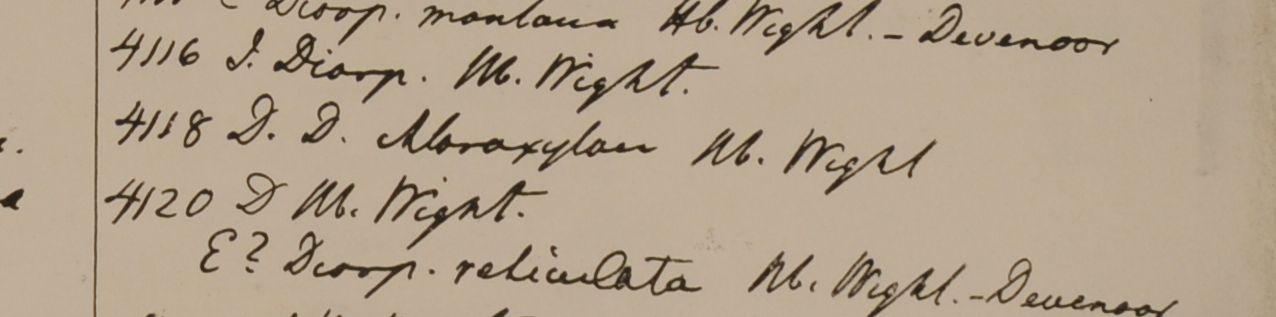 C Diosp. montana Hb. Wight. - Devenoor
4116 I. Diosp. Hb. Wight.
4118 D. D. chloroxylon Hb. Wight
4120 D Hb. Wight.
E? Diosp. reticulata Hb. Wight. - Devenoor